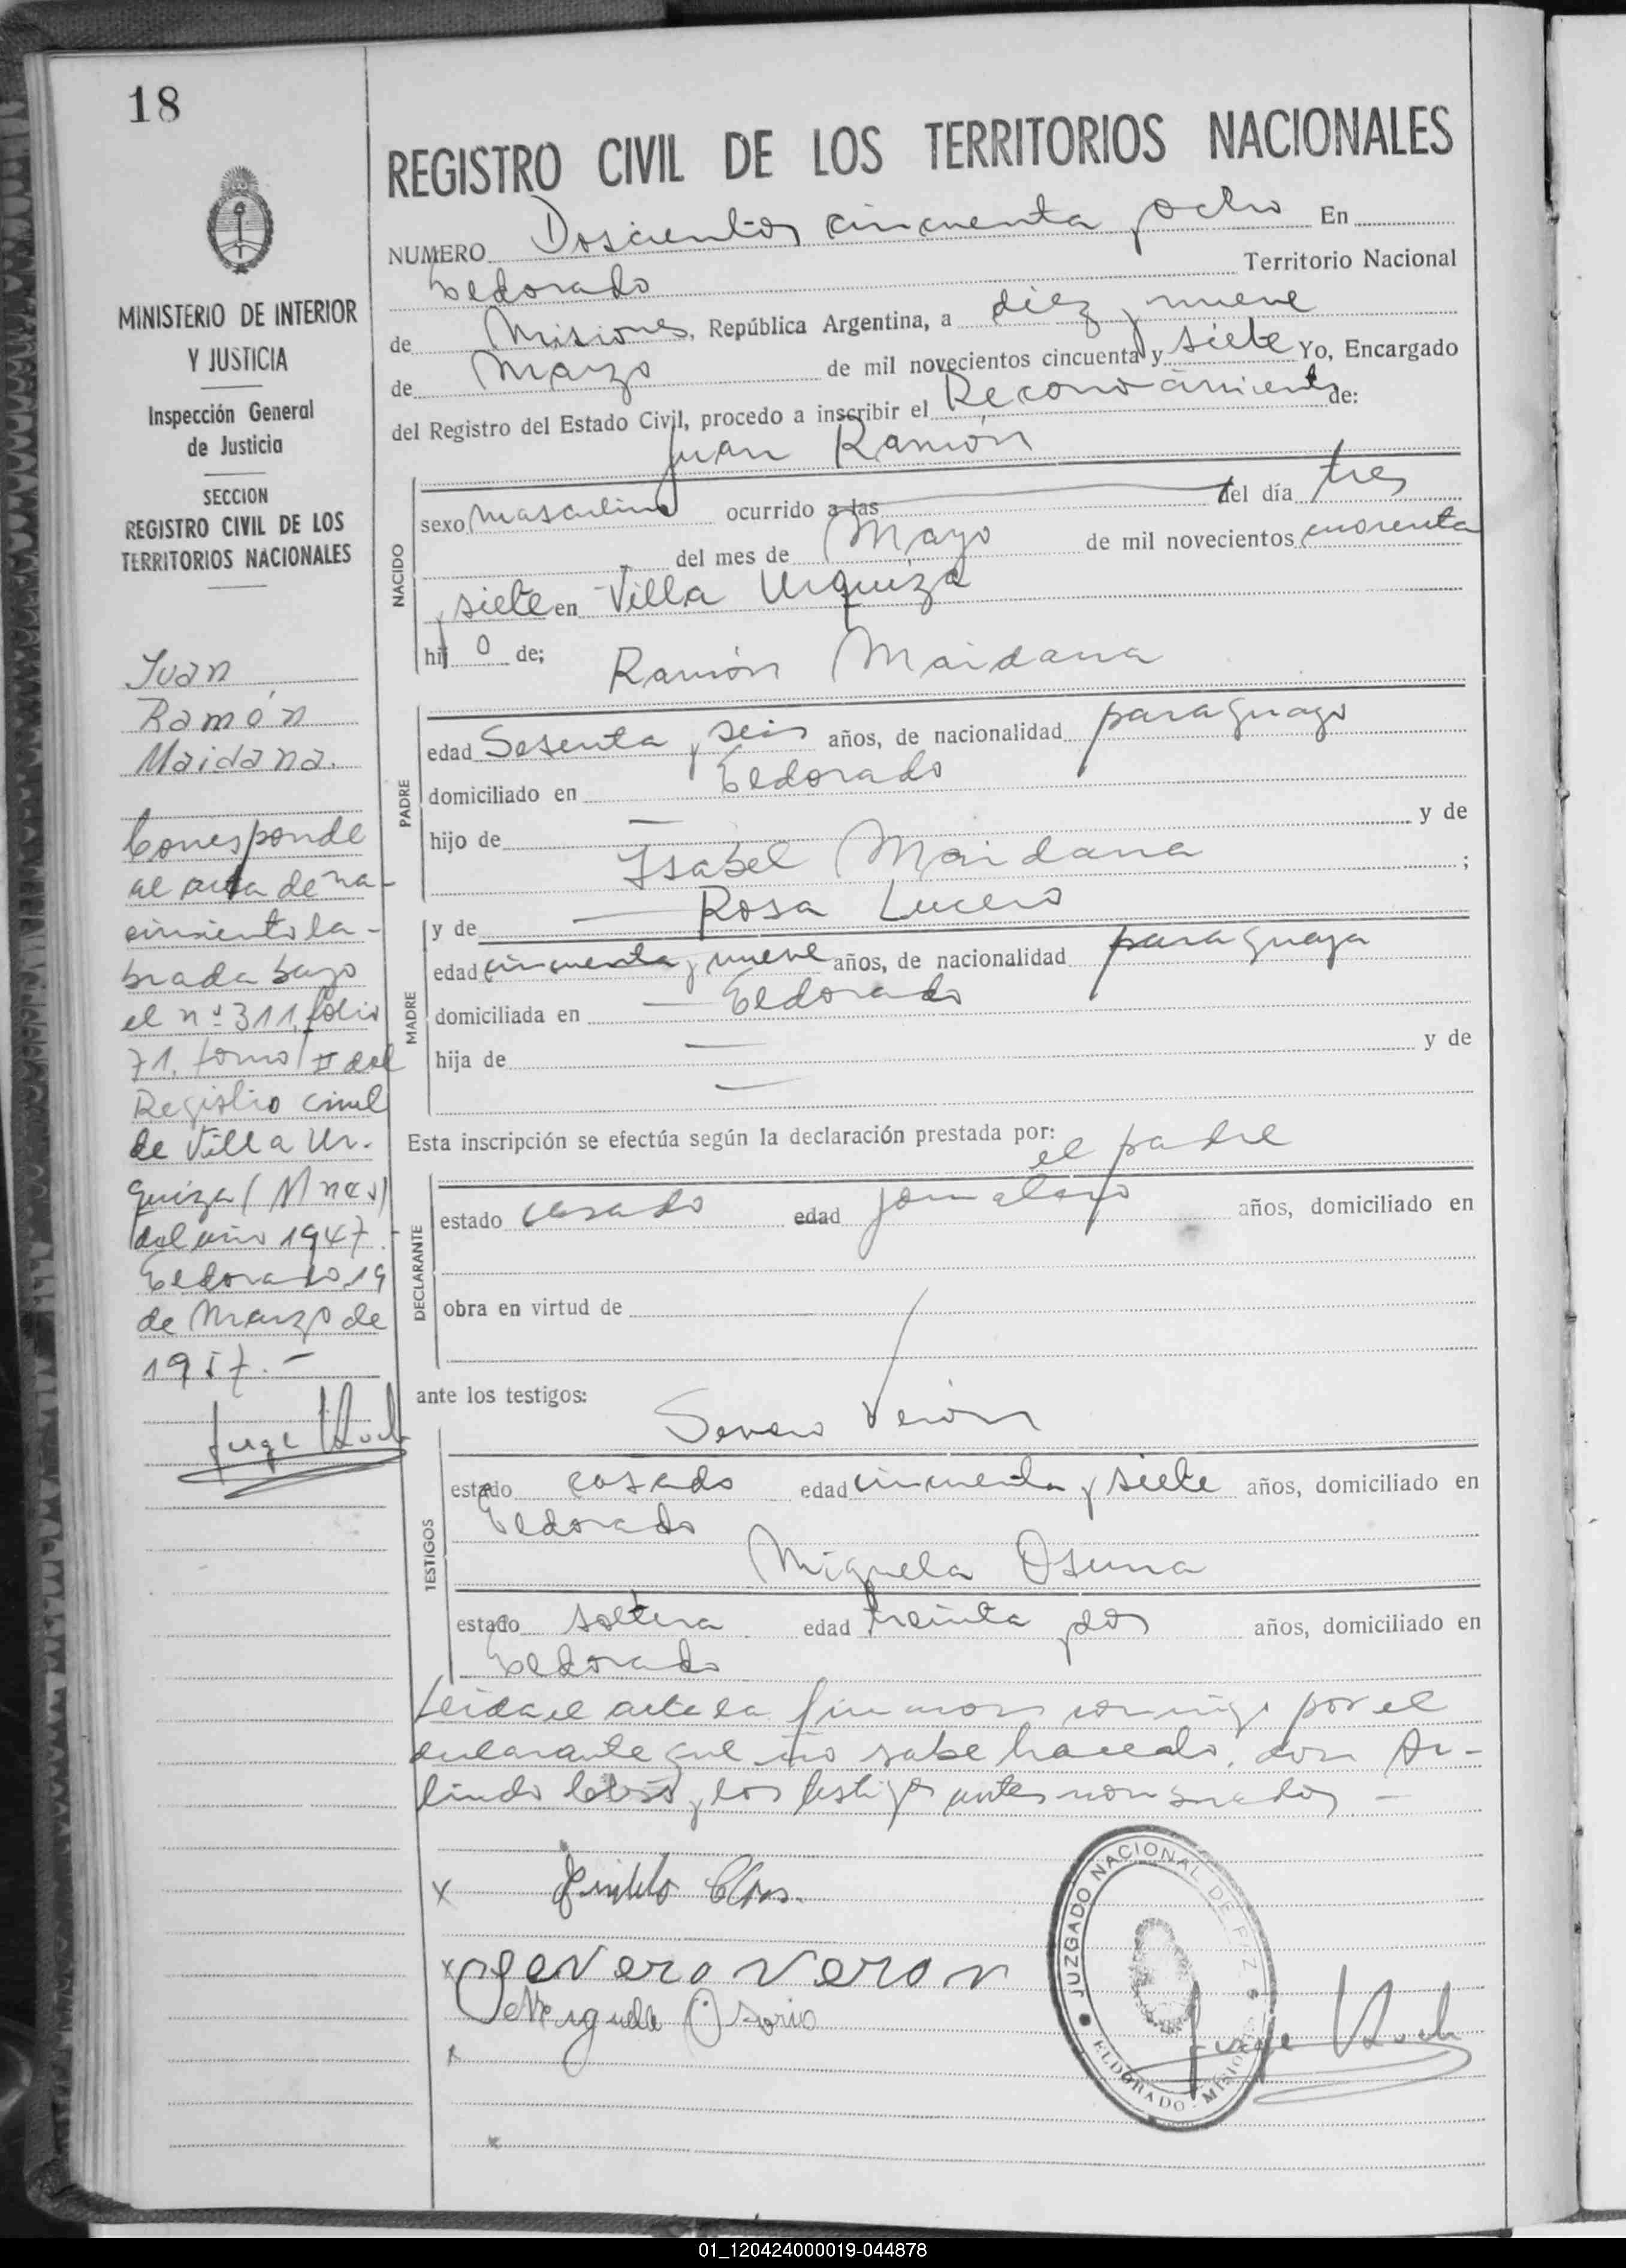 18
MINISTERIO DE INTERIOR
Y JUSTICIA
Inspección General
de Justicia
SECCION
REGISTRO CIVIL DE LOS
TERRITORIOS NACIONALES
Juan
Ramón
Maidana.
Corresponde
al acta de na-
cimiento la-
brada bajo
el nº 311, folio
71, tomo II del
Registro civil
de Villa Ur-
quiza (Mnes)
del año 1947.-
Eldorado, 19
de Marzo de
1957.-
REGISTRO CIVIL DE LOS TERRITORIOS NACIONALES
NUMERO Doscientos cincuenta y ocho En
Eldorado Territorio Nacional
de Misiones, República Argentina, a diez y nueve
de Marzo de mil novecientos cincuenta y siete Yo, Encargado
del Registro del Estado Civil, procedo a inscribir el Reconocimiento de:
Juan Ramón
NACIDO
sexo masculino ocurrido a las del día tres
del mes de Mayo de mil novecientos cuarenta
y siete en Villa Urquiza
hij o de; Ramón Maidana
PADRE
edad Sesenta y seis años, de nacionalidad paraguayo
domiciliado en Eldorado
hijo de — y de
Isabel Maidana ;
y de — Rosa Lucero
MADRE
edad cincuenta y nueve años, de nacionalidad paraguaya
domiciliada en — Eldorado
hija de — y de
—
Esta inscripción se efectúa según la declaración prestada por: el padre
DECLARANTE
estado casado edad jornalero años, domiciliado en
obra en virtud de
ante los testigos:
Severo Verón
TESTIGOS
estado casado edad cincuenta y siete años, domiciliado en
Eldorado
Miguela Osuna
estado soltera edad treinta y dos años, domiciliado en
Eldorado
Leida el acta la firmaron conmigo por el
declarante que no sabe hacerlo, don Ar-
lindo y los testigos antes nombrados -
x
x Severo veron
Miguela Osorio
x
x
JUZGADO NACIONAL DE PAZ
ELDORADO - MISIONES
01_120424000019-044878